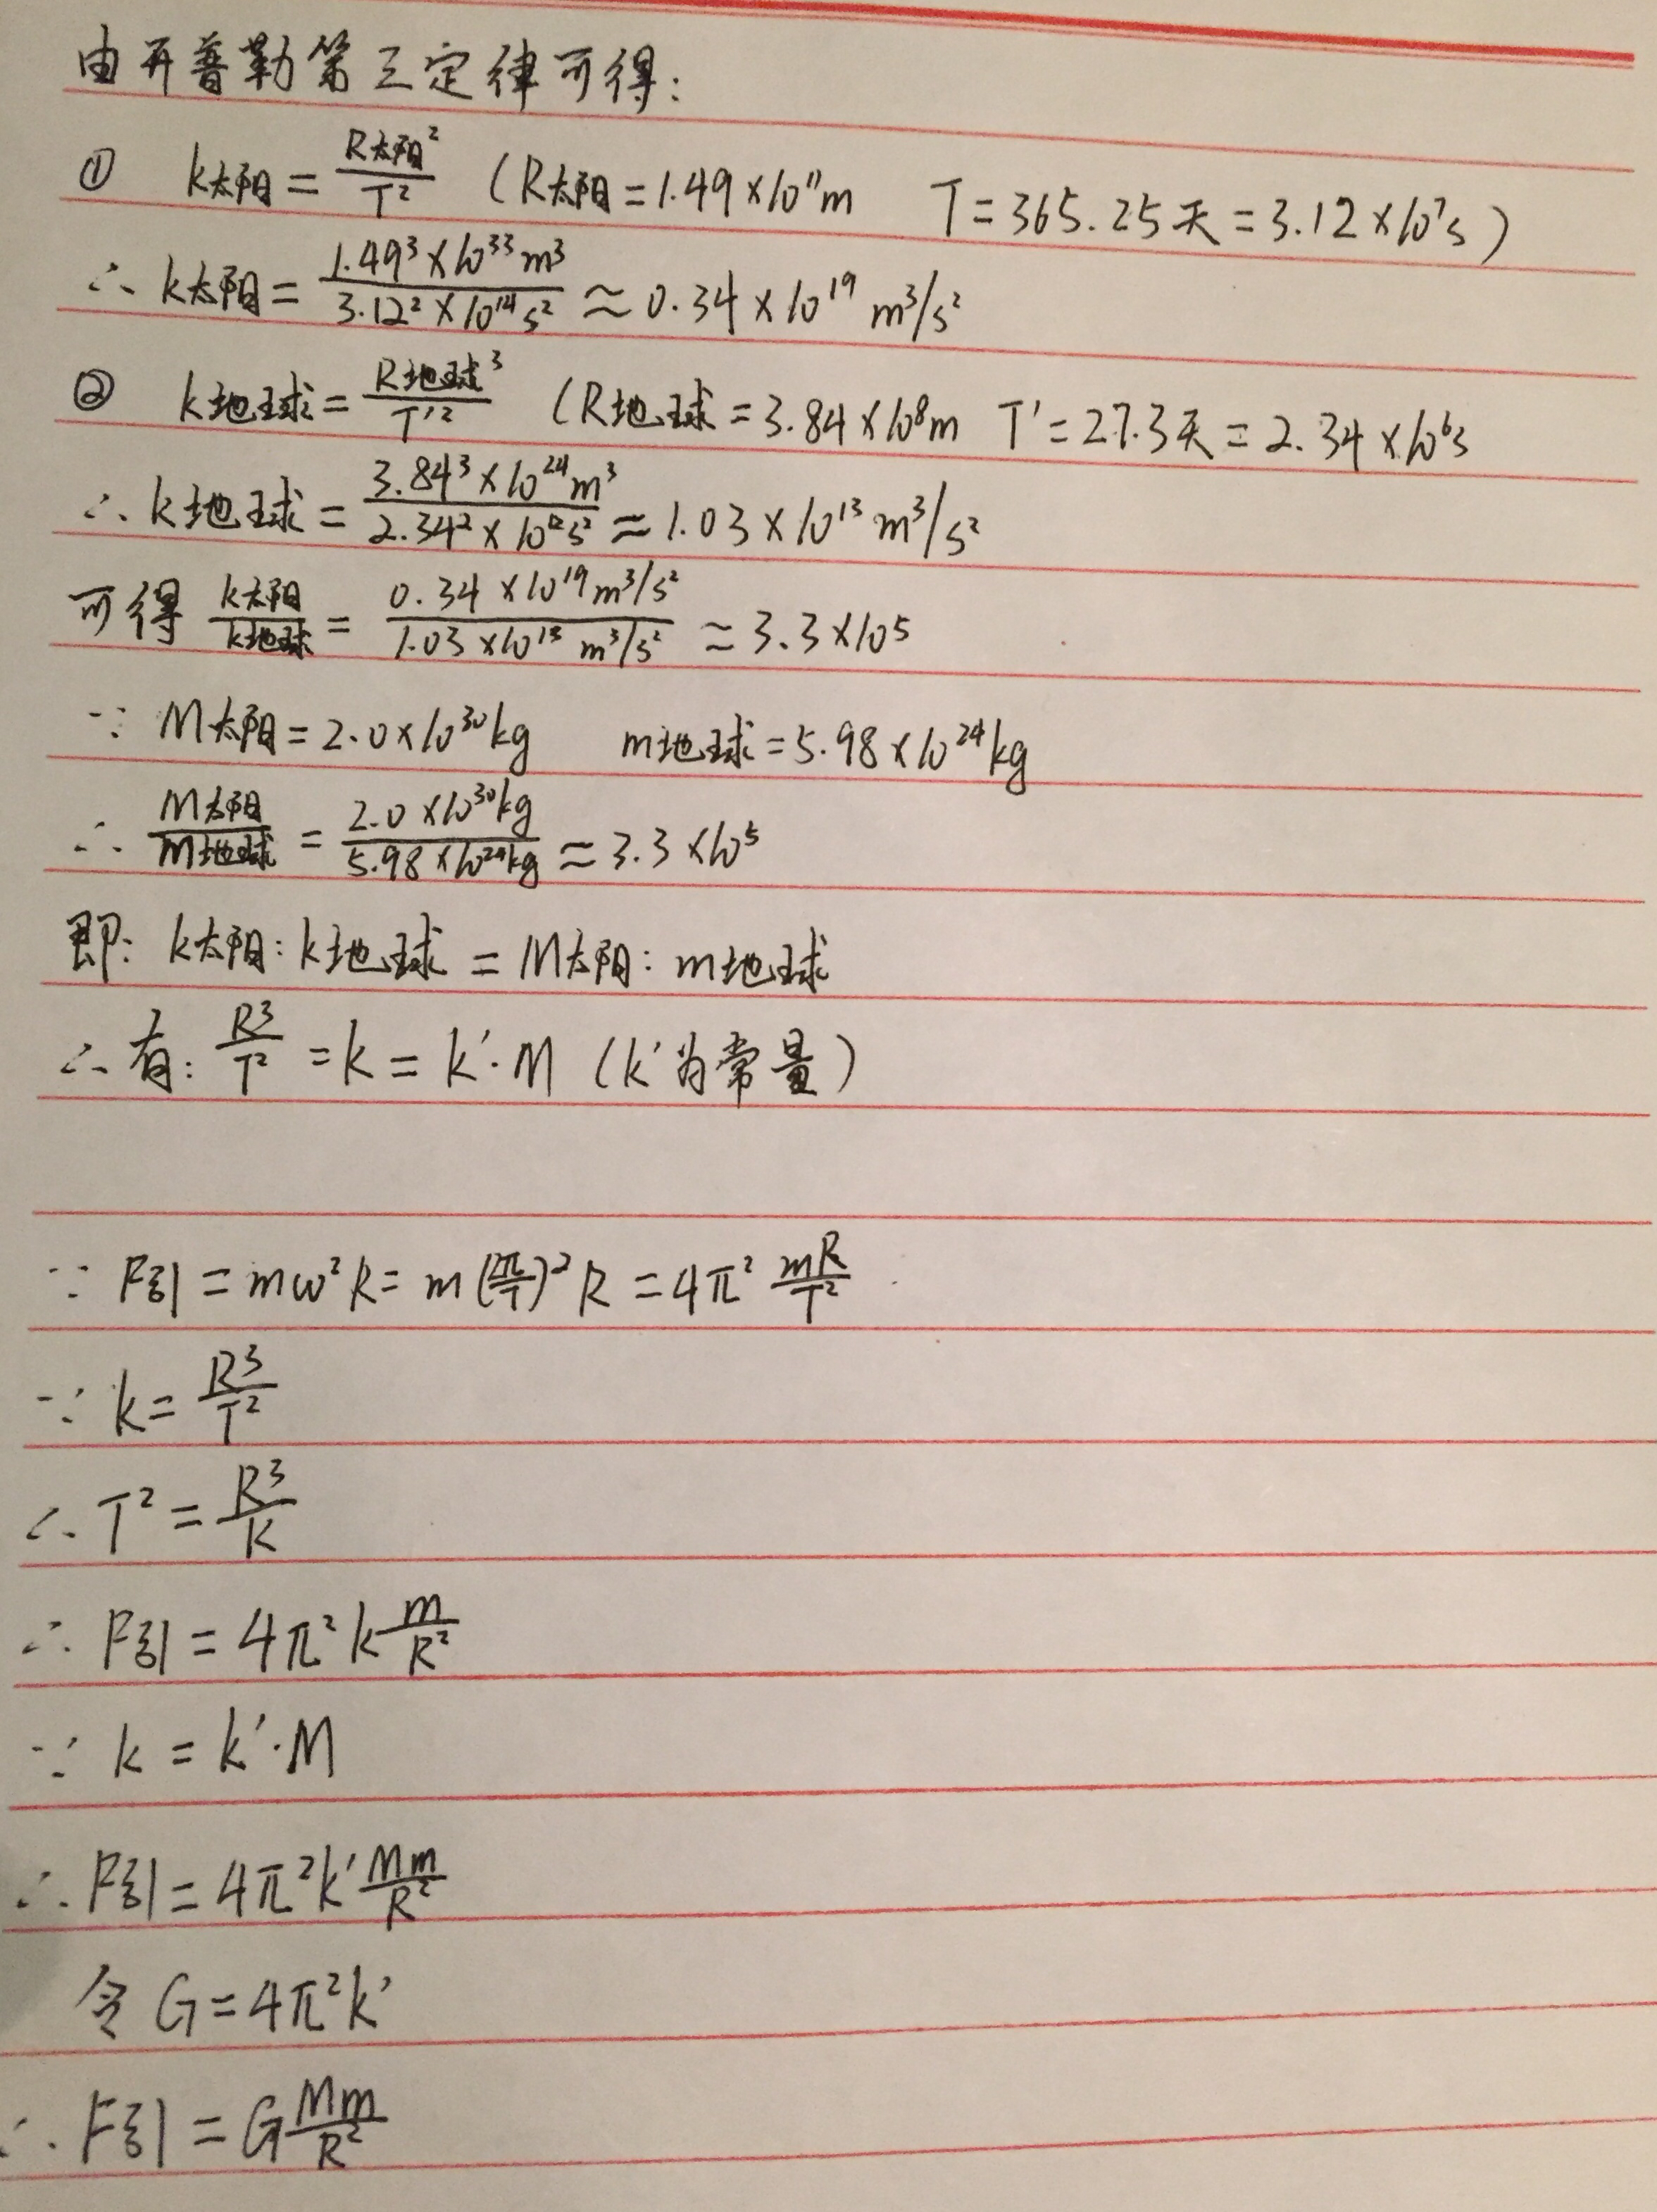 由开普勒第三定律可得：
① k太阳 = R太阳²/T² (R太阳 = 1.49×10¹¹m T = 365.25天 = 3.12×10⁷s)
∴ k太阳 = 1.49³×10³³m³/3.12²×10¹⁴s² ≈ 0.34×10¹⁹ m³/s²
② k地球 = R地球³/T'² (R地球 = 3.84×10⁸m T' = 27.3天 = 2.34×10⁶s
∴ k地球 = 3.84³×10²⁴m³/2.34²×10¹²s² ≈ 1.03×10¹³m³/s²
可得 k太阳/k地球 = 0.34×10¹⁹m³/s²/1.03×10¹³ m³/s² ≈ 3.3×10⁵
∵ M太阳 = 2.0×10³⁰kg m地球 = 5.98×10²⁴kg
∴ M太阳/m地球 = 2.0×10³⁰kg/5.98×10²⁴kg ≈ 3.3×10⁵
即：k太阳：k地球 = M太阳：m地球
∴ 有：R³/T² = k = k'·M (k'为常量)
∵ F引 = mω²R = m(2π/T)²R = 4π² mR/T²
∵ k = R³/T²
∴ T² = R³/k
∴ F引 = 4π²k m/R²
∵ k = k'·M
∴ F引 = 4π²k' Mm/R²
令 G = 4π²k'
∴ F引 = G Mm/R²